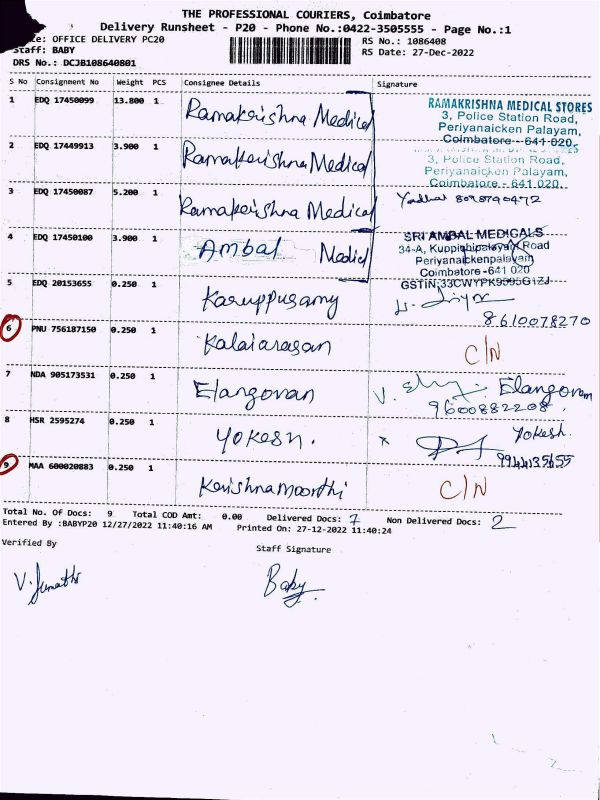 THE PROFESSIONAL COURIERS, Coimbatore
Delivery Runsheet - P20 - Phone No.:0422-3505555 - Page No.:1
OFFICE DELIVERY PC20 RS No.: 1086408
Staff: BABY RS Date: 27-Dec-2022
DRS No.: DCJB108640801
S No Consignment No Weight PCS Consignee Details Signature
1 EDQ 17450099 13.800 1 Ramakrishna Medical RAMAKRISHNA MEDICAL STORES
3, Police Station Road,
Periyanaicken Palayam,
Coimbatore - 641 020.
2 EDQ 17449913 3.900 1 Ramakrishna Medical
3, Police Station Road,
Periyanaicken Palayam,
Coimbatore - 641 020.
3 EDQ 17450087 5.200 1 Ramakrishna Medical
4 EDQ 17450100 3.900 1 Ambal Medical SRI AMBAL MEDICALS
34-A, Kuppichipalayam Road
Periyanaickenpalayam
Coimbatore - 641 020
5 EDQ 20153655 0.250 1 Karuppusamy
8610078270
6 PNU 756187150 0.250 1 Kalaiarasan C/N
7 NDA 905173531 0.250 1 Elangovan Elangovan
9600882208.
8 HSR 2595274 0.250 1 Yokesh. x Yokesh.
9 MAA 600020883 0.250 1 Krishnamoorthi C/N
Total No. Of Docs: 9 Total COD Amt: 0.00 Delivered Docs: 7 Non Delivered Docs: 2
Entered By :BABYP20 12/27/2022 11:40:16 AM Printed On: 27-12-2022 11:40:24
Verified By Staff Signature
Baby